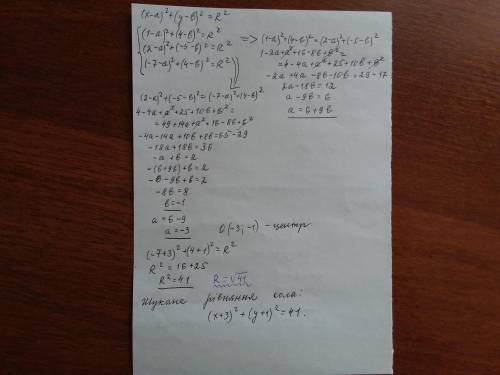 (x-a)² + (y-b)² = R²
(1-a)² + (4-b)² = R²
(2-a)² + (-5-b)² = R²
(-7-a)² + (4-b)² = R²
=> (1-a)² + (4-b)² = (2-a)² + (-5-b)²
1-2a+a²+16-8b+b² =
= 4-4a+a²+25+10b+b²
-2a+4a-8b-10b = 29-17
2a-18b = 12
a-9b = 6
a = 6+9b
(2-a)² + (-5-b)² = (-7-a)² + (4-b)²
4-4a+a²+25+10b+b² =
= 49+14a+a²+16-8b+b²
-4a-14a+10b+8b = 65-29
-18a+18b = 36
-a+b = 2
-(6+9b)+b = 2
-6-9b+b = 2
-8b = 8
b = -1
a = 6-9
a = -3
O(-3; -1) - центр
(-7+3)² + (4+1)² = R²
R² = 16+25
R² = 41 R = √41
Шукане рівняння кола:
(x+3)² + (y+1)² = 41.